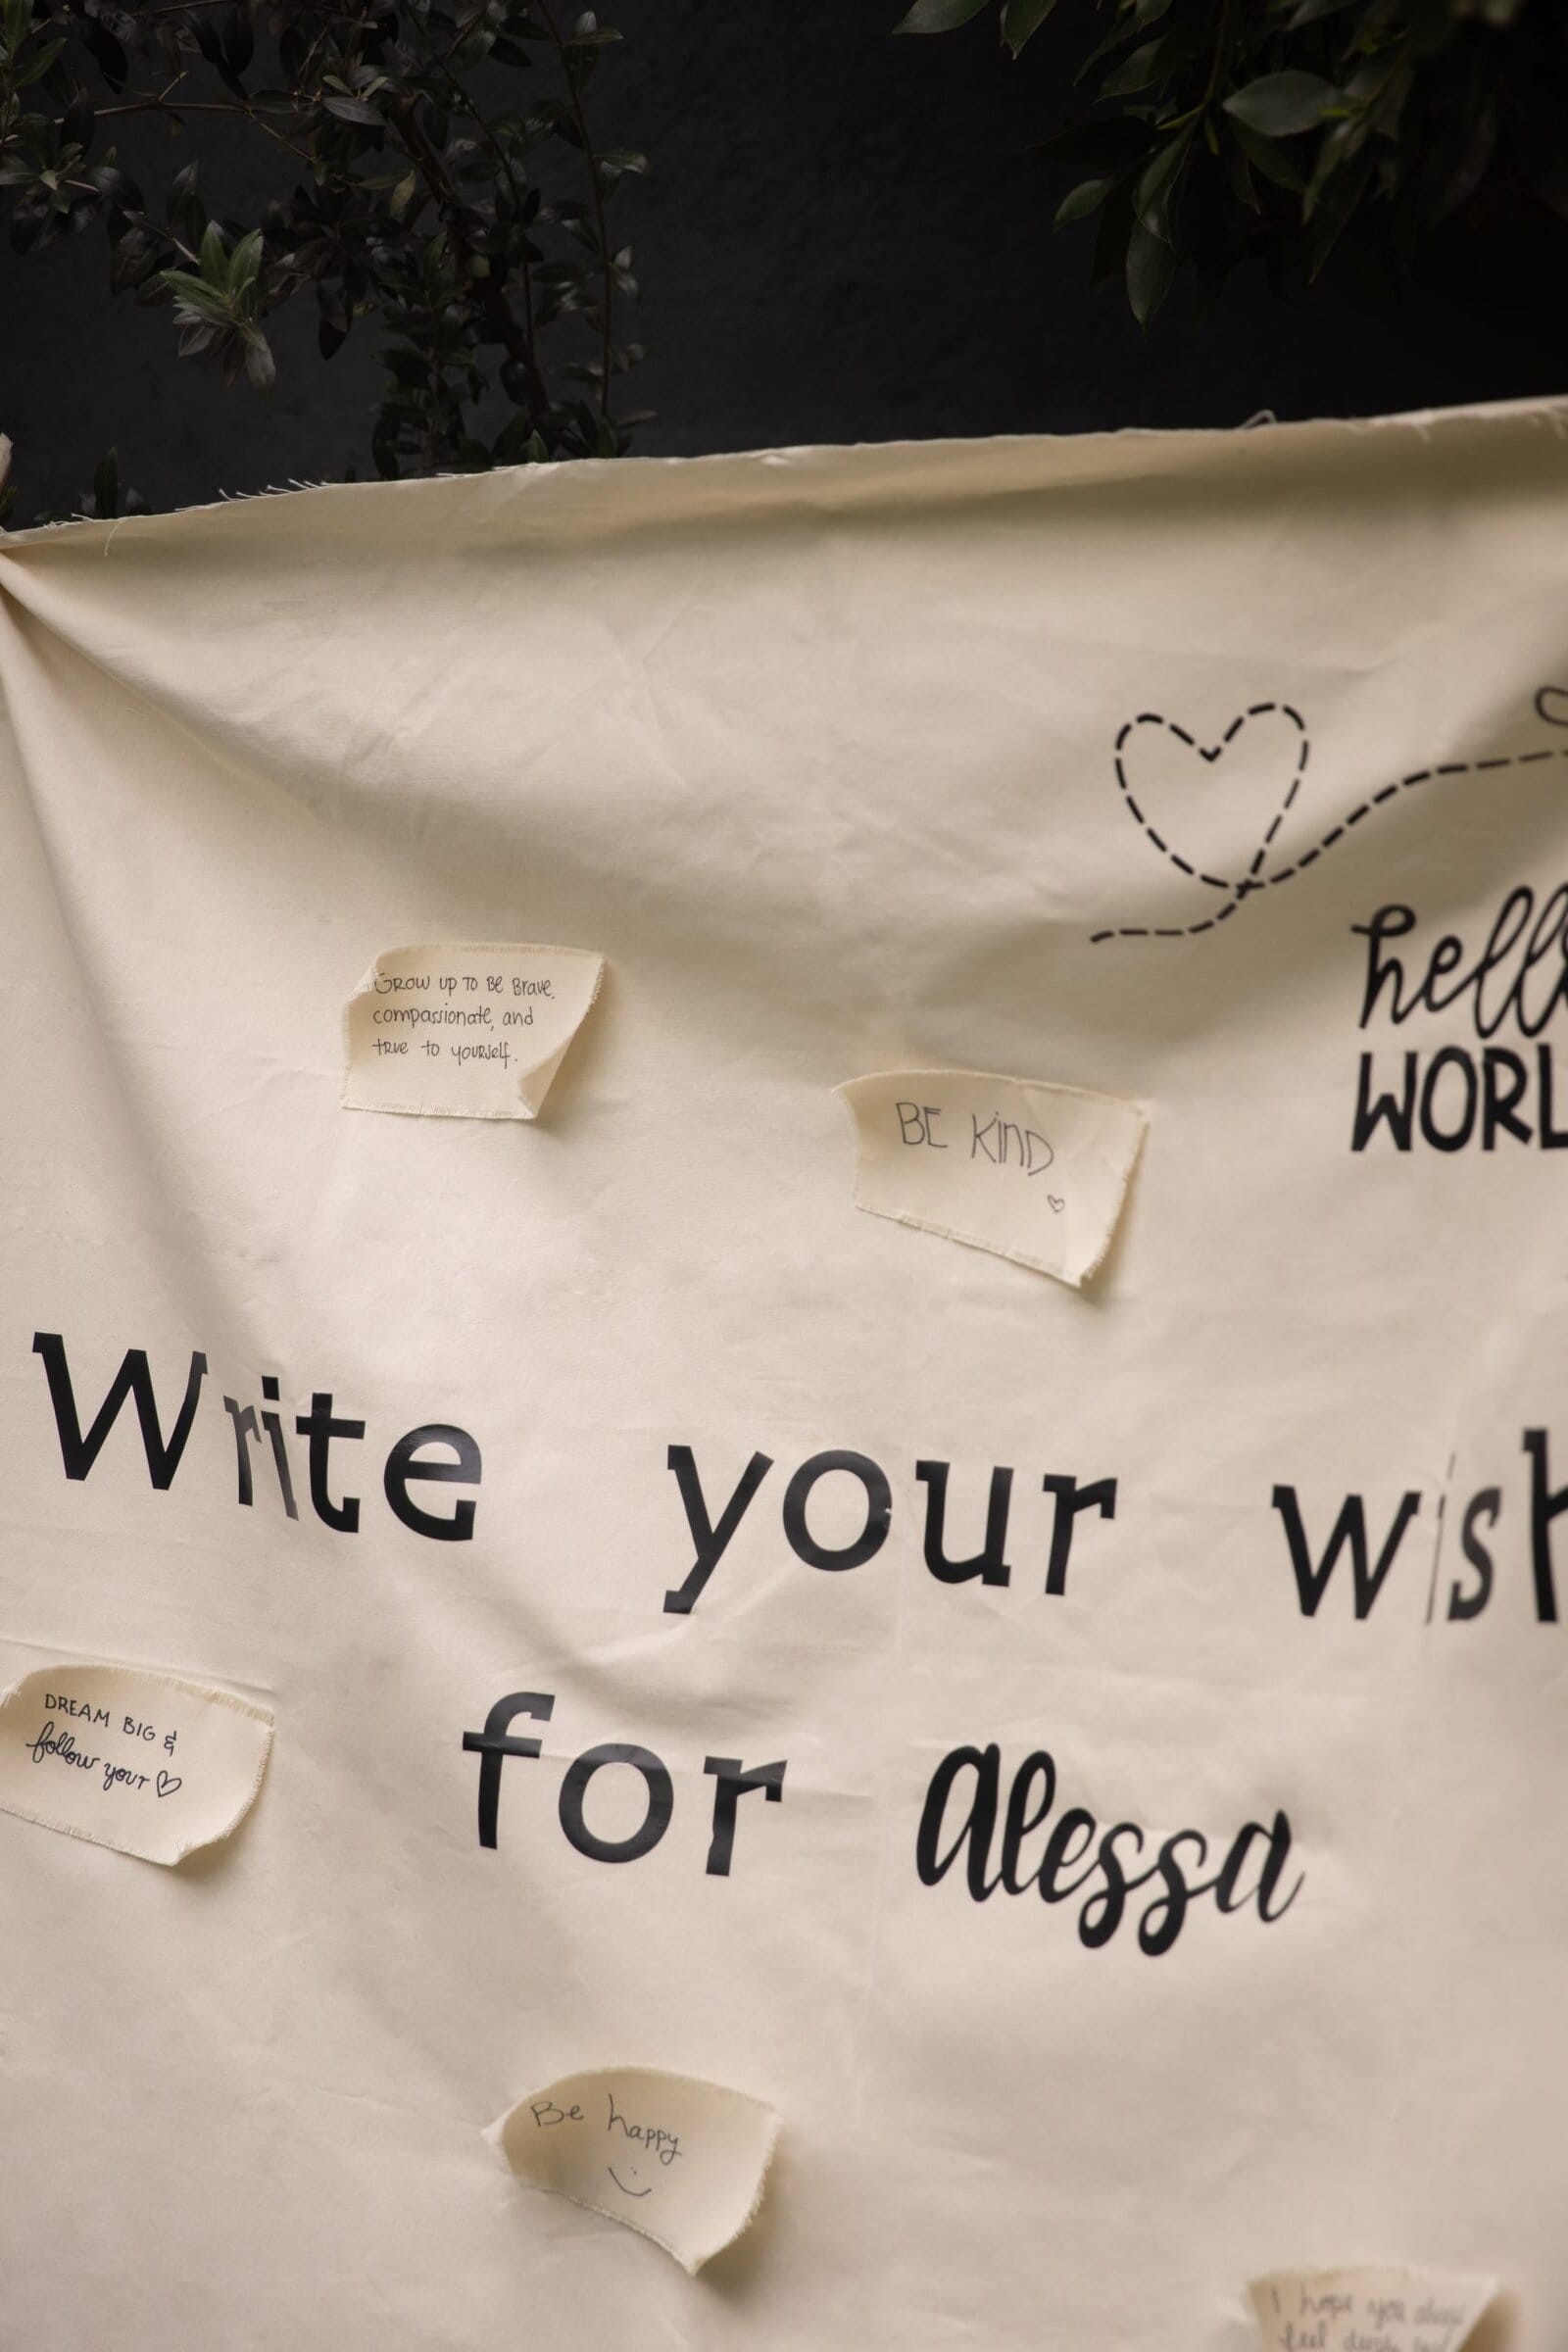 hello
WORL
GROW UP TO BE BRAVE,
compassionate, and
TRUE TO YOURSELF.
BE KIND
Write your wish
for Alessa
DREAM BIG &
follow your
Be happy
I hope you
feel